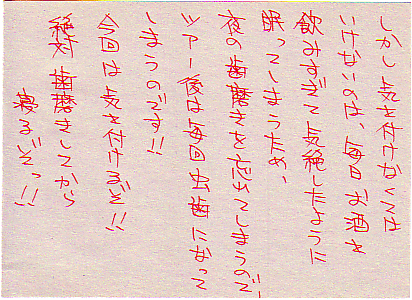 しかし気を付けなくては
いけないのは、毎日お酒を
飲みすぎて気絶したように
眠ってしまうため、
夜の歯磨きを忘れてしまうので、
ツアー後は毎回虫歯になって
しまうのです!!
今回は気を付けるぞ!!
絶対歯磨きしてから
寝るぞっ!!